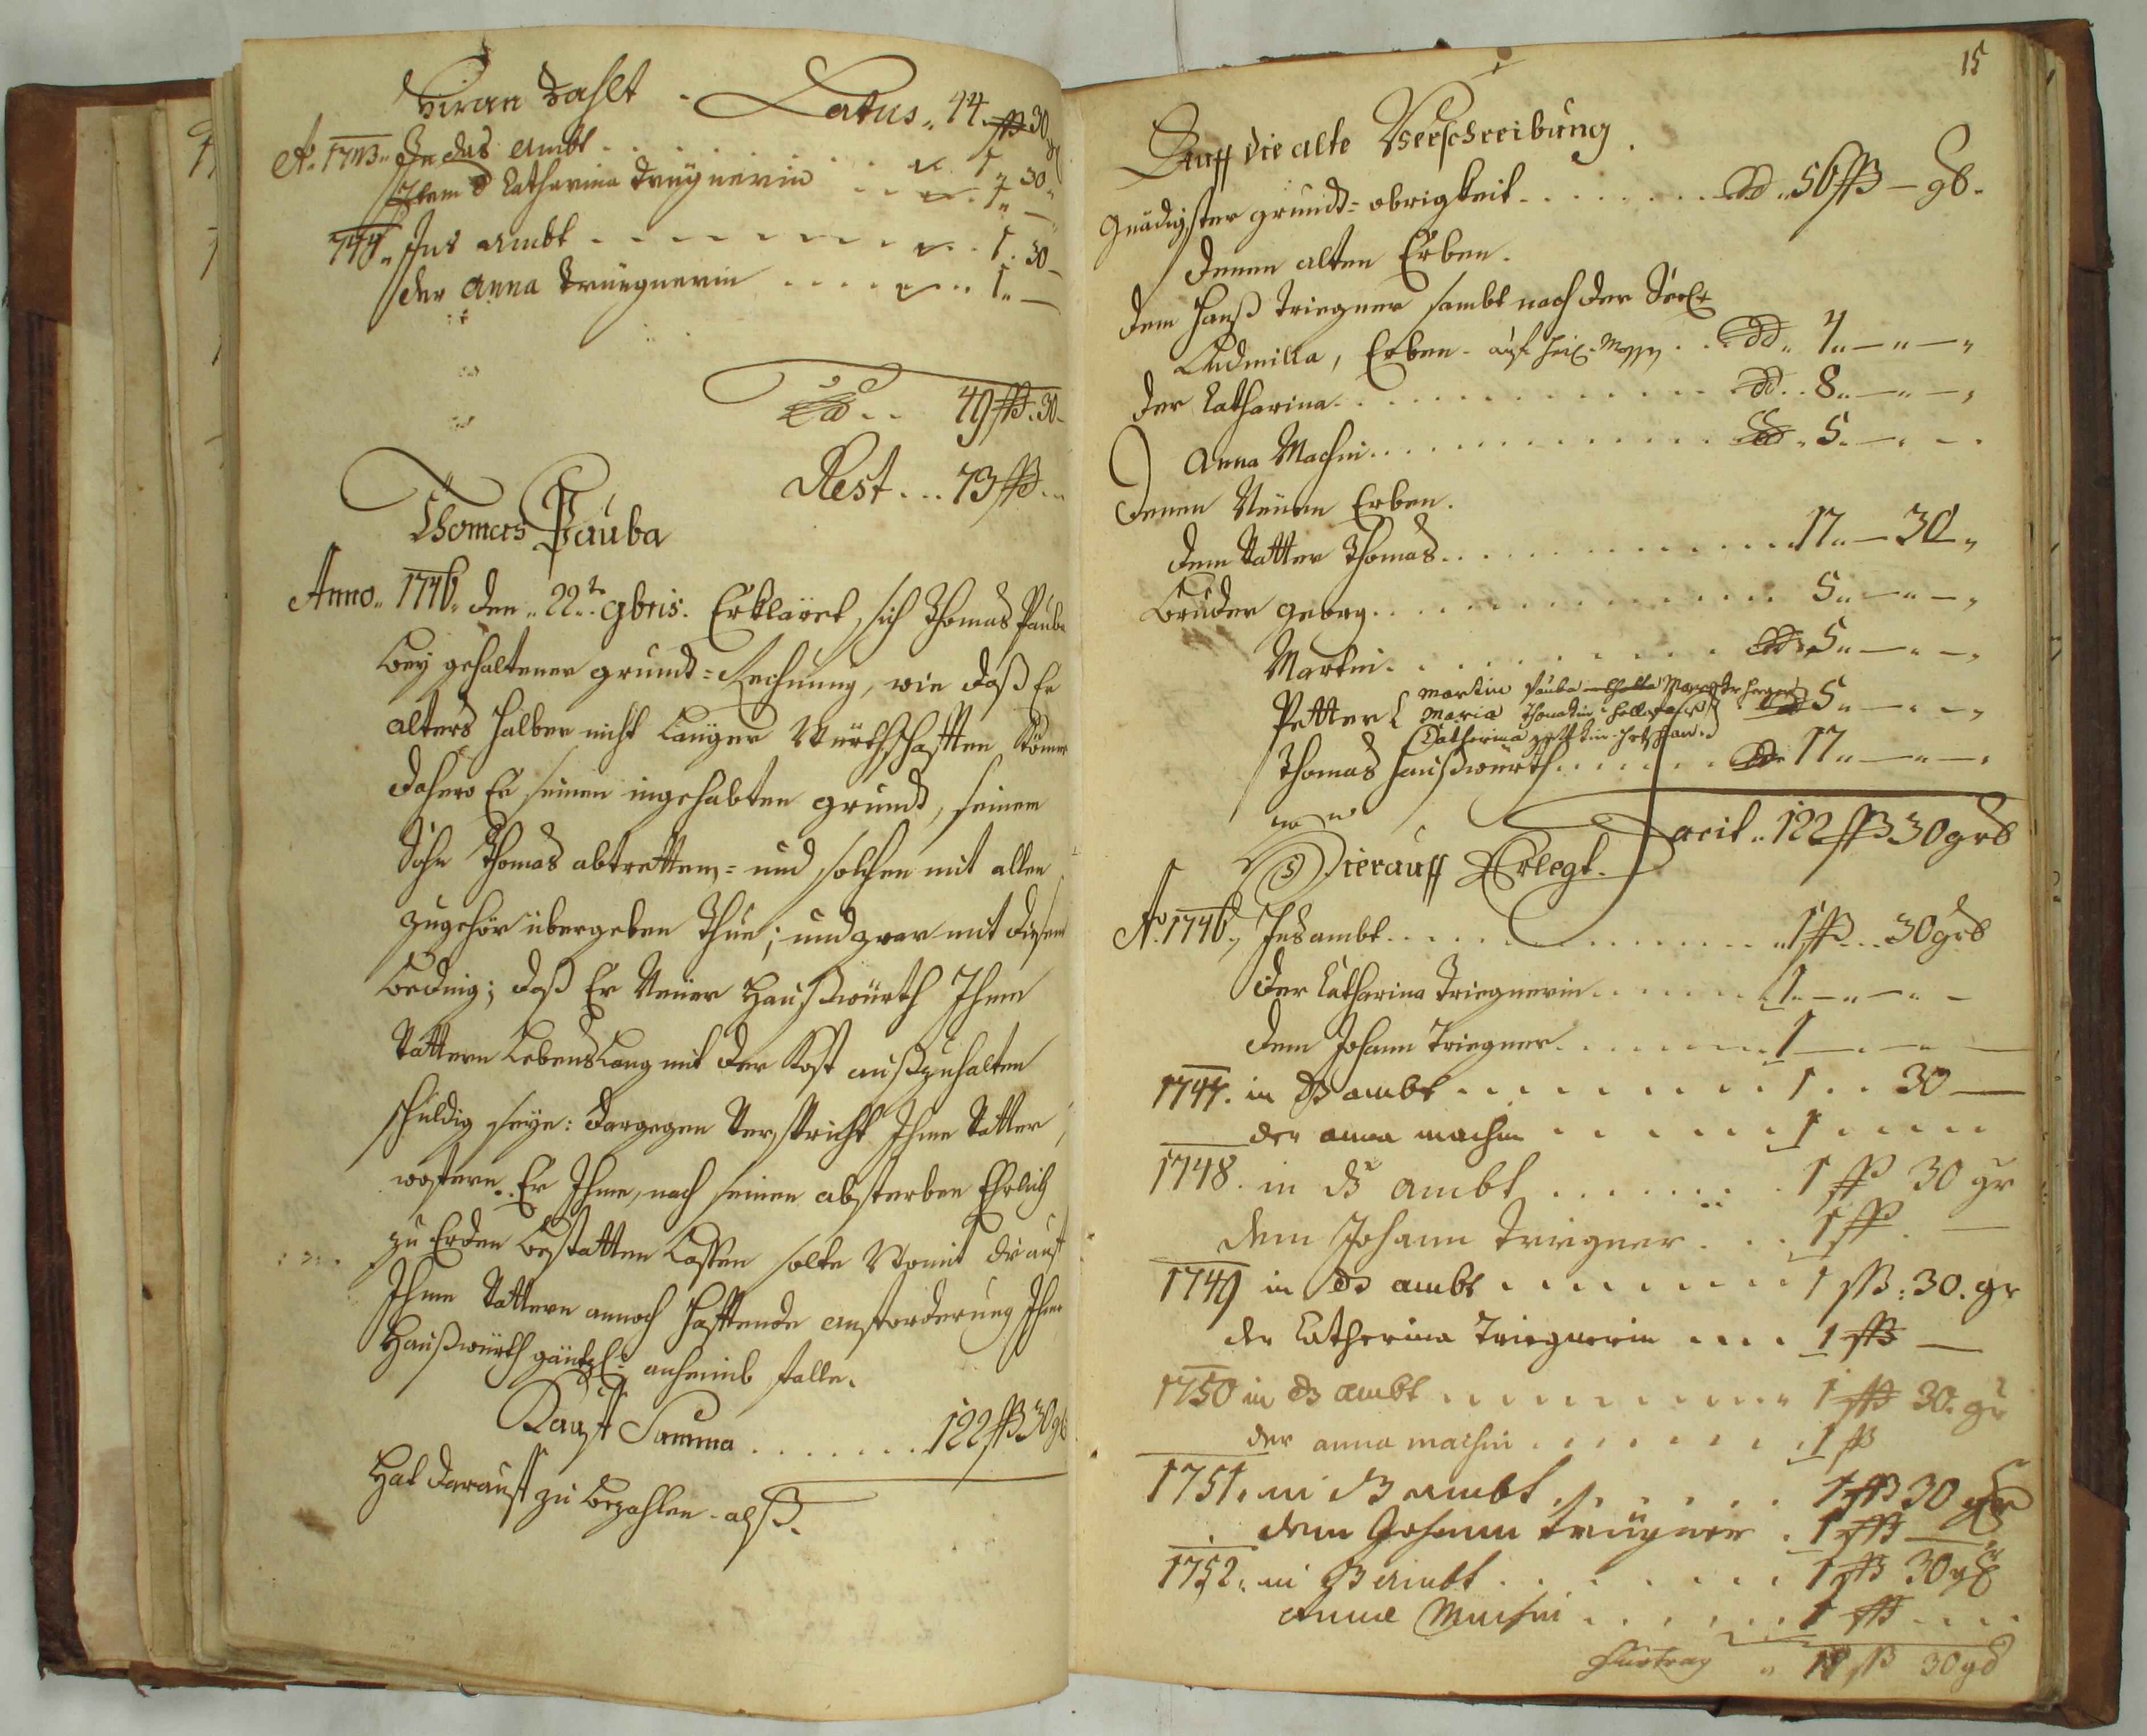 Hieran Zahlt - Latus „ 44. ßß 30
Aõ 1743 „ In das Ambt . . . 1 „ 30 „
Item d Catharina Triegnerin . . 1 „ —
744 „ Ins Ambt . . . . 1 . 30 –
der Anna Triegnerin . . . . 1 „ —
49 ßß . 30 –
Rest . . . 73 ßß . .
Thomas Pauba
Anno „ 1746 „ den „ 22te 9bris . Erkläret sich Thomas Pauba
bey gehaltener grundt = Rechnung, wie daß Er
alters halber nicht länger Würthschafften könne
dahero Er seinen ingehabten grundt, seinem
Sohn Thomas abtretten = und solchen mit allen
zugehör übergeben thue; und zwar mit diesem
beding; daß Er Neüer Haußwürth Ihme
Vattern Lebenslang mit der Kost außzuhalten
schuldig seye: dargegen verspricht Ihme Vatter,
wofern Er Ihme, nach seinen absterben Ehrlich
zu Erden bestatten Lassen solte womit die auf
Ihme Vattern annoch hafftende anforderung Ihme
Haußwürth gäntzl: anheimb falle.
Kauff Summa . . . . . . . 122 ßß 30 gß
Hat darauff zu bezahlen - alß.
15
Auff die alte Verschreibung .
Gnädigster grundt = obrigkeit . . . . . . . 56 ßß — gß .
denen alten Erben .
dem Hanß Triegner sambt nach der
Ludmilla, Erben - . . 4 „ — „ — „
der Catharina . . . . . . . 8 „ — „ — „
Anna Machin . . . . . . . 5 . — . — .
Denen Neüen Erben .
dem Vatter Thomas . . . . . . . 17 „ — 30 „
Bruder Georg . . . . . . . 5 „ — „ — „
Martin . . . . . . . 5 „ — „ — „
Petter { Martin Pauba
Maria 5 „ — „ — „
Catharina
Thomas Haußwürth . . . . . . 17 „ — „ — „
Facit „ 122 ßß 30 grß
Hierauff Erlegt .
Aõ 1746 „ Ins ambt . . . . . . . 1 ßß . . 30 grß
der Catharina Triegnerin . . . . . . 1 „ — „ — „ —
dem Johann Triegner . . . . . . 1 — „ — „ —
1747 . in dß ambt . . . . . . . 1 . . 30 —
der anna machin . . . . . . 1 . . . . .
1748 . in dß ambt . . . . . . . 1 ßß 30 gr
dem Johann Triegner . . . 1 ßß . —
1749 in dß ambt . . . . . . . 1 ßß : 30 . gr
der Catherina Triegnerin . . . . 1 ßß —
1750 in dß ambt . . . . . . . 1 ßß 30 . gr
der anna machin . . . . . . 1 ß
1751 . in dß ambt . . . . . . 1 ßß 30 gr
dem Johann Triegner . 1 ßß —
1752 . in dß ambt . . . . . . 1 ßß 30 gr
Anna Machin . . . . . . 1 ßß . . . .
Fürtrag „ 18 ßß 30 gß